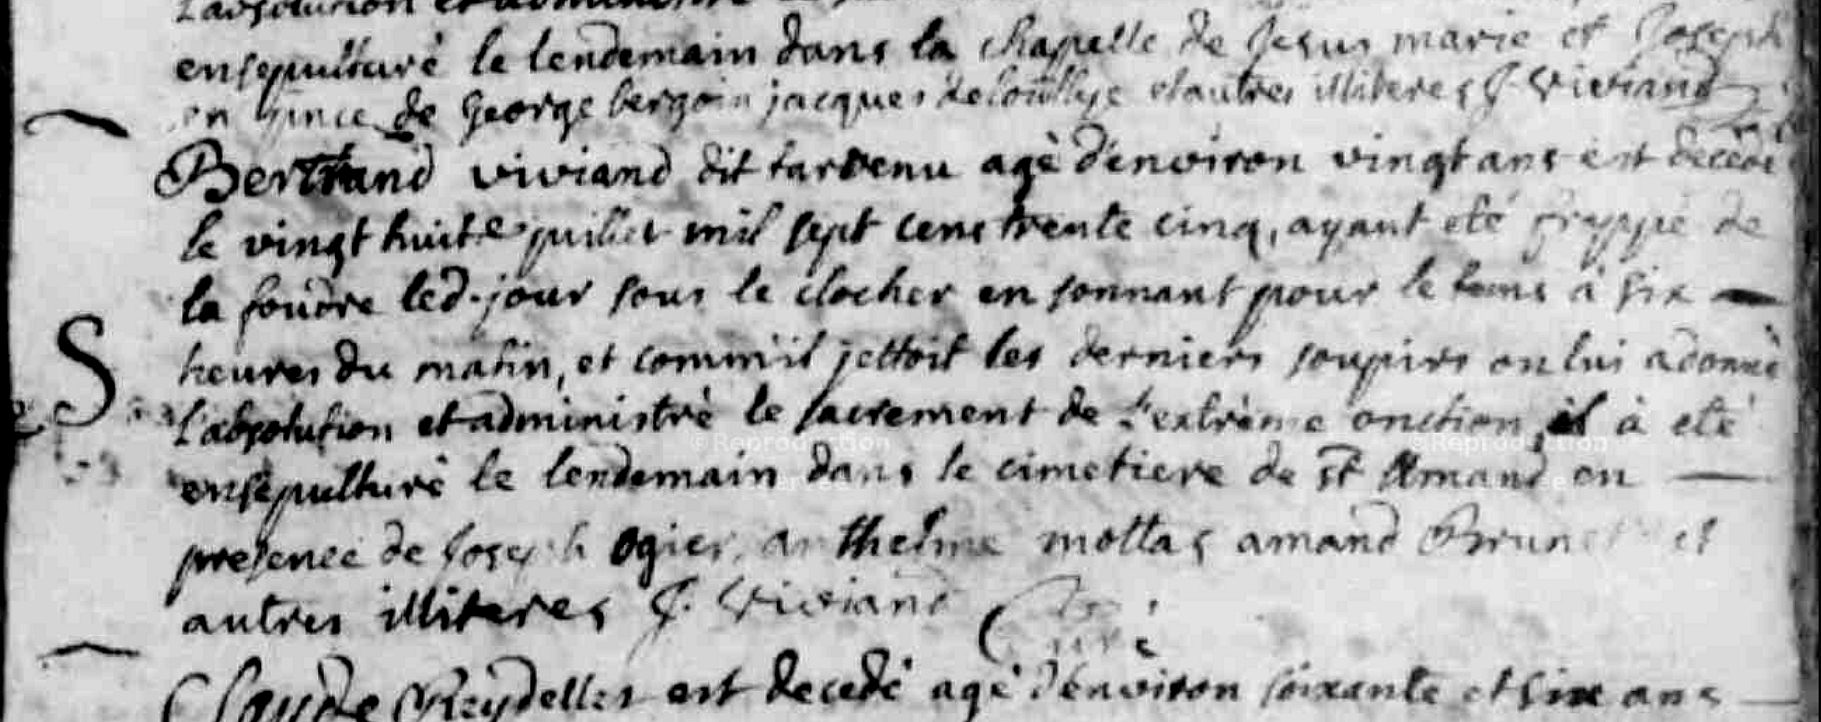 L'absolution et administré le
ensepulturé le lendemain dans la chapelle de Jesus marie et Joseph
en p̄ince de George bergoin jacques et autres illiteres J. Viviand
Bertrand viviand dit tardenu agé d'environ vingt ans est decedé
le vingt huit.e juillet mil sept cens trente cinq, ayant eté frappé de
la foudre led. jour sous le clocher en sonnant pour le tems à six
heures du matin, et comm'il jettoit les derniers soupirs on lui a donné
S
L'absolution et administré le sacrement de l'extrême onction, il à eté
©Reproduction ©Reproduction
ensepulturé le lendemain dans le cimetiere de st Amand en
presence de Joseph Ogier, anthelme mottas amand Brunet et
autres illiteres J. Viviand Curé
Claude Reydellet est decedé agé d'environ soixante et six ans